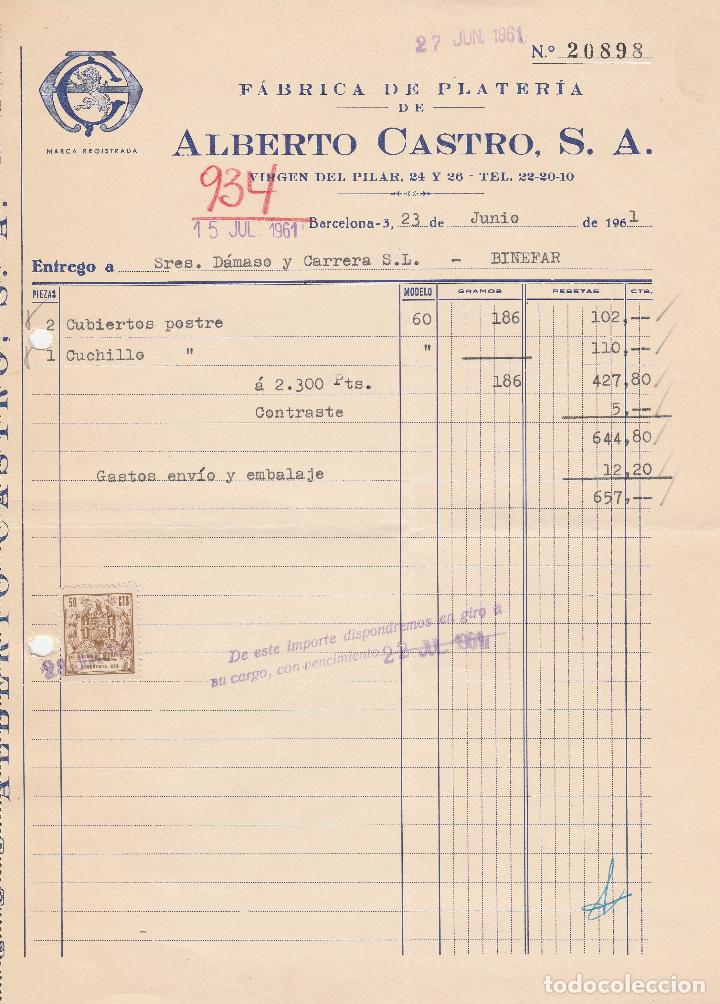 27 JUN. 1961
N.º 20898
MARCA REGISTRADA
FÁBRICA DE PLATERÍA
DE
ALBERTO CASTRO, S. A.
VIRGEN DEL PILAR, 24 Y 26 - TEL. 22-20-10
934
15 JUL 1961
Barcelona-3, 23 de Junio de 1961
Entrego a Sres. Dámaso y Carrera S.L. - BINEFAR
PIEZAS MODELO GRAMOS PESETAS CTS.
2 Cubiertos postre 60 186 102,--
1 Cuchillo " " 110,--
á 2.300 Pts. 186 427,80
Contraste 5,--
644,80
Gastos envío y embalaje 12,20
657,--
50 CTS
De este importe dispondremos en giro a
su cargo, con vencimiento 22 JUL 1961
ALBERTO CASTRO, S. A.
todocoleccion